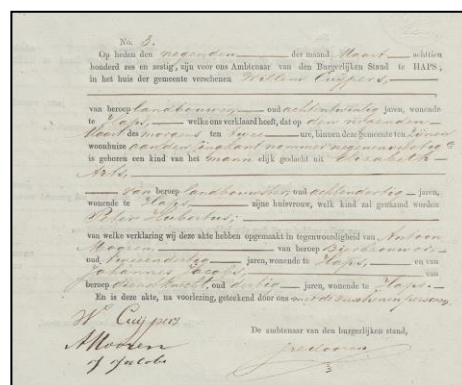 No. 3.
Op heden den negenden der maand Maart achttien
honderd zes en zestig, zijn voor ons Ambtenaar van den Burgerlijken Stand te HAPS,
in het huis der gemeente verschenen Willem Cuijpers,
van beroep landbouwer, oud achtentwintig jaren, wonende
te Haps, welke ons verklaard heeft, dat op den
Maart des morgens ten twee ure, binnen deze gemeente ten zijnen
woonhuize aan den nommer negenenzestig a
is geboren een kind van het mann elijk geslacht uit Elizabeth
Arts,
van beroep landbouwster, oud achtendertig jaren,
wonende te Haps zijne huisvrouw, welk kind zal genaamd worden
Peter Hubertus;
van welke verklaring wij deze akte hebben opgemaakt in tegenwoordigheid van Antoon
Mooren van beroep Bierbrouwer
oud tweeendertig jaren, wonende te Haps, en van
Johannes Jacobs, van
beroep dienstknecht, oud dertig jaren, wonende te Haps.
En is deze akte, na voorlezing, geteekend door ons met de verschenen personen
W. Cuijpers
De ambtenaar van den burgerlijken stand,
A Mooren
J Jacobs